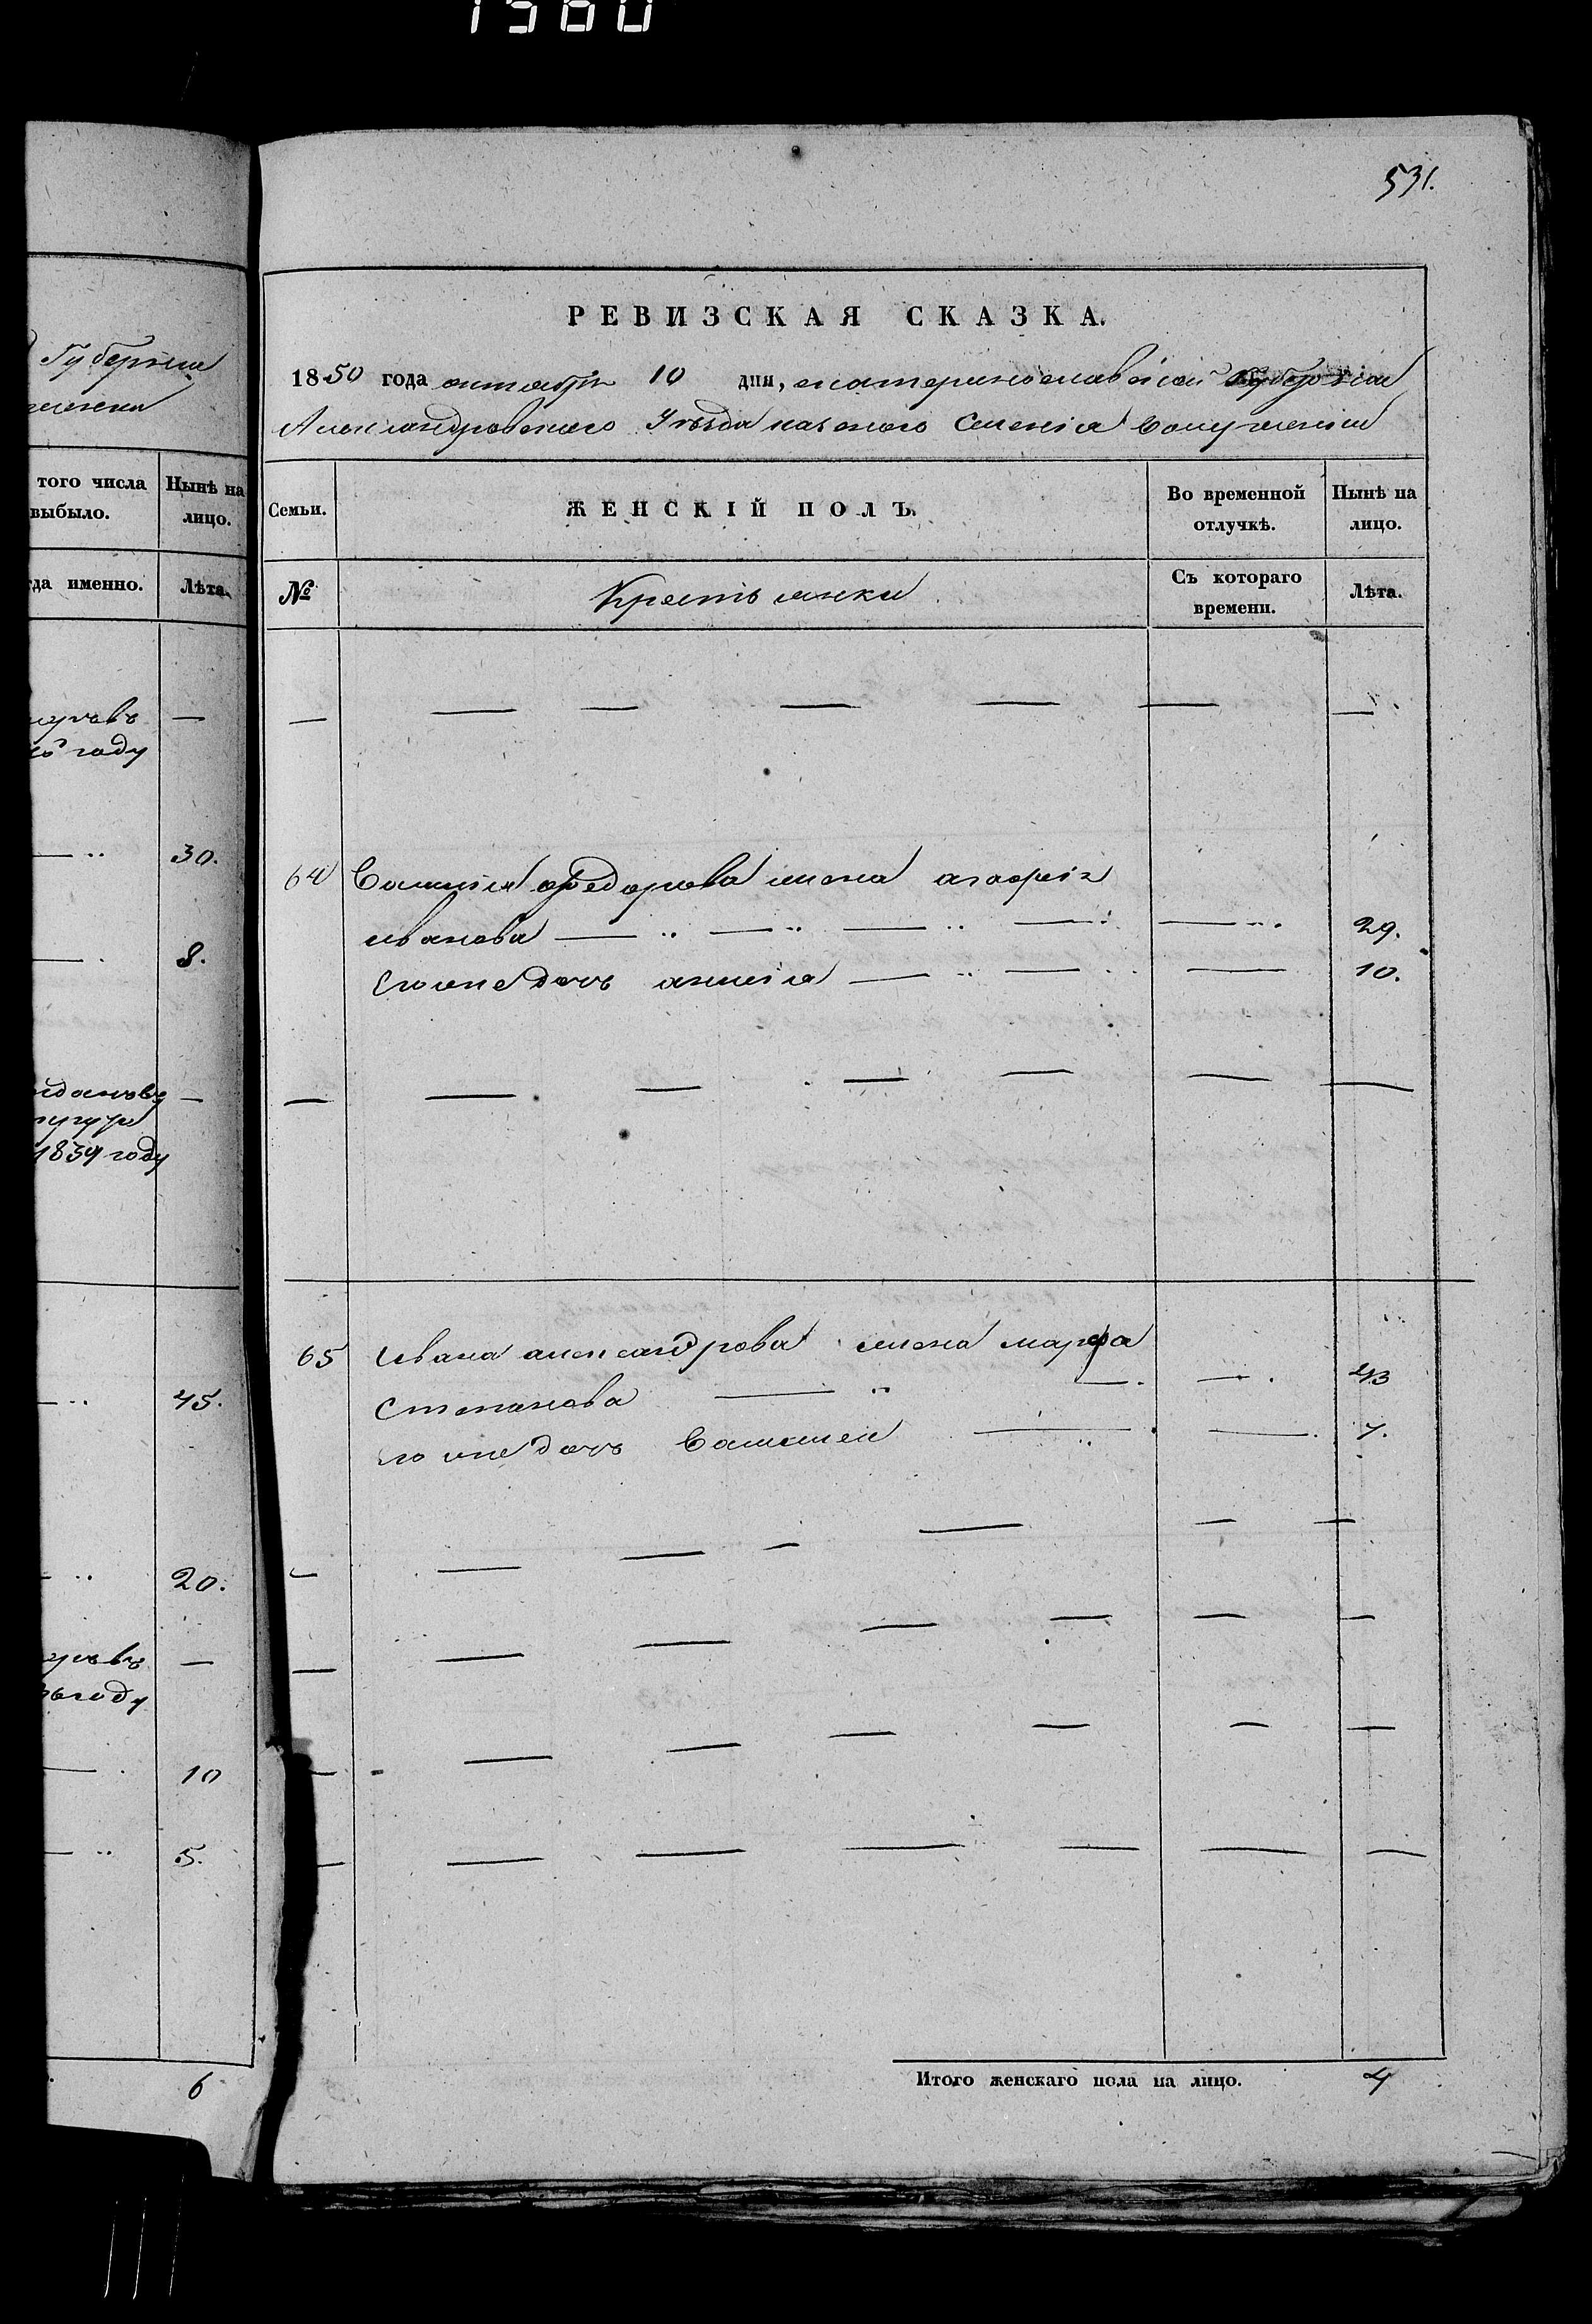 1580
531.
Губернiи
того числа выбыло.
Нынѣ на лицо.
да именно.
Лѣта.
году
30.
8.
1839 году
45.
20.
году
10
5.
6
РЕВИЗСКАЯ СКАЗКА.
1850 года октября 10 дня, екатеринославской Губернiи
Александровского Уѣзда казеного Селенiя
Семьи.
ЖЕНСКІЙ ПОЛЪ.
Во временной отлучкѣ.
Нынѣ на лицо.
№
Крестьянки
Съ котораго времени.
Лѣта.
64 Василия Федорова жена агафiя
иванова 29.
его же дочь 10.
65 Ивана александрова жена марфа
Степанова 43
его же дочь 7.
Итого женскаго пола на лицо. 4